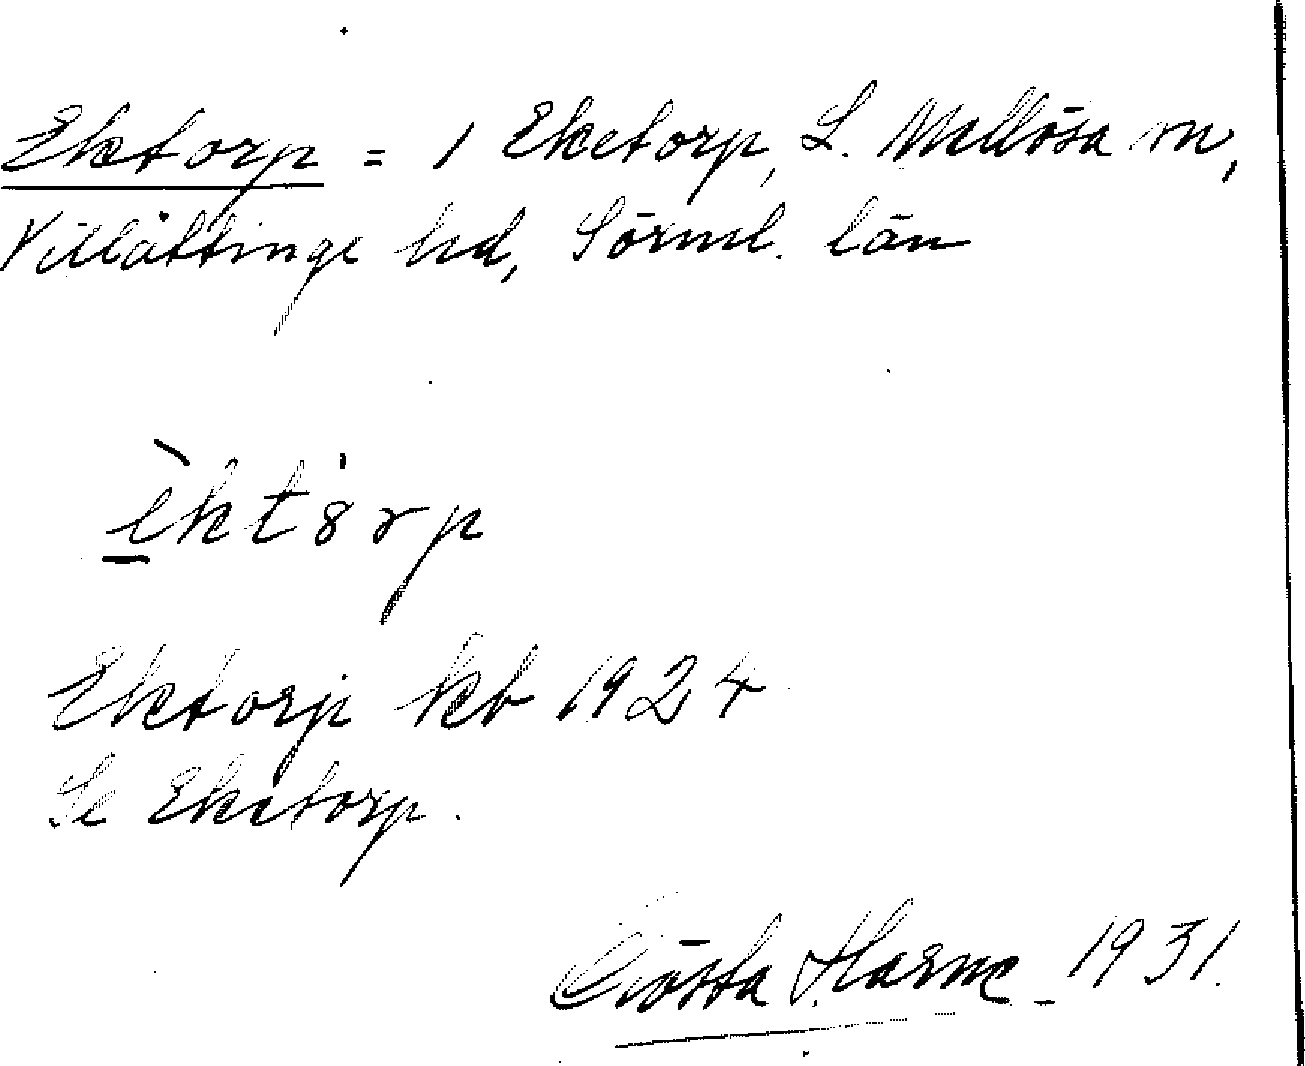 Ektorp = 1 Eketorp, L. Mellösa sn,
Villåttinge hd, Sörml. län
èktȯrp
Ektorp kb 1924
Se Eketorp.
Gösta Harme 1931.